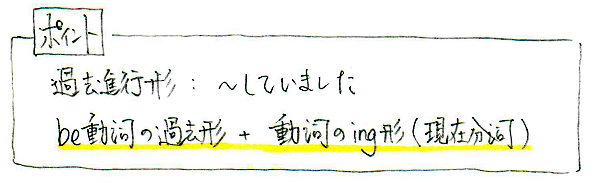 ポイント
過去進行形 : ～していました
be動詞の過去形 + 動詞のing形 (現在分詞)